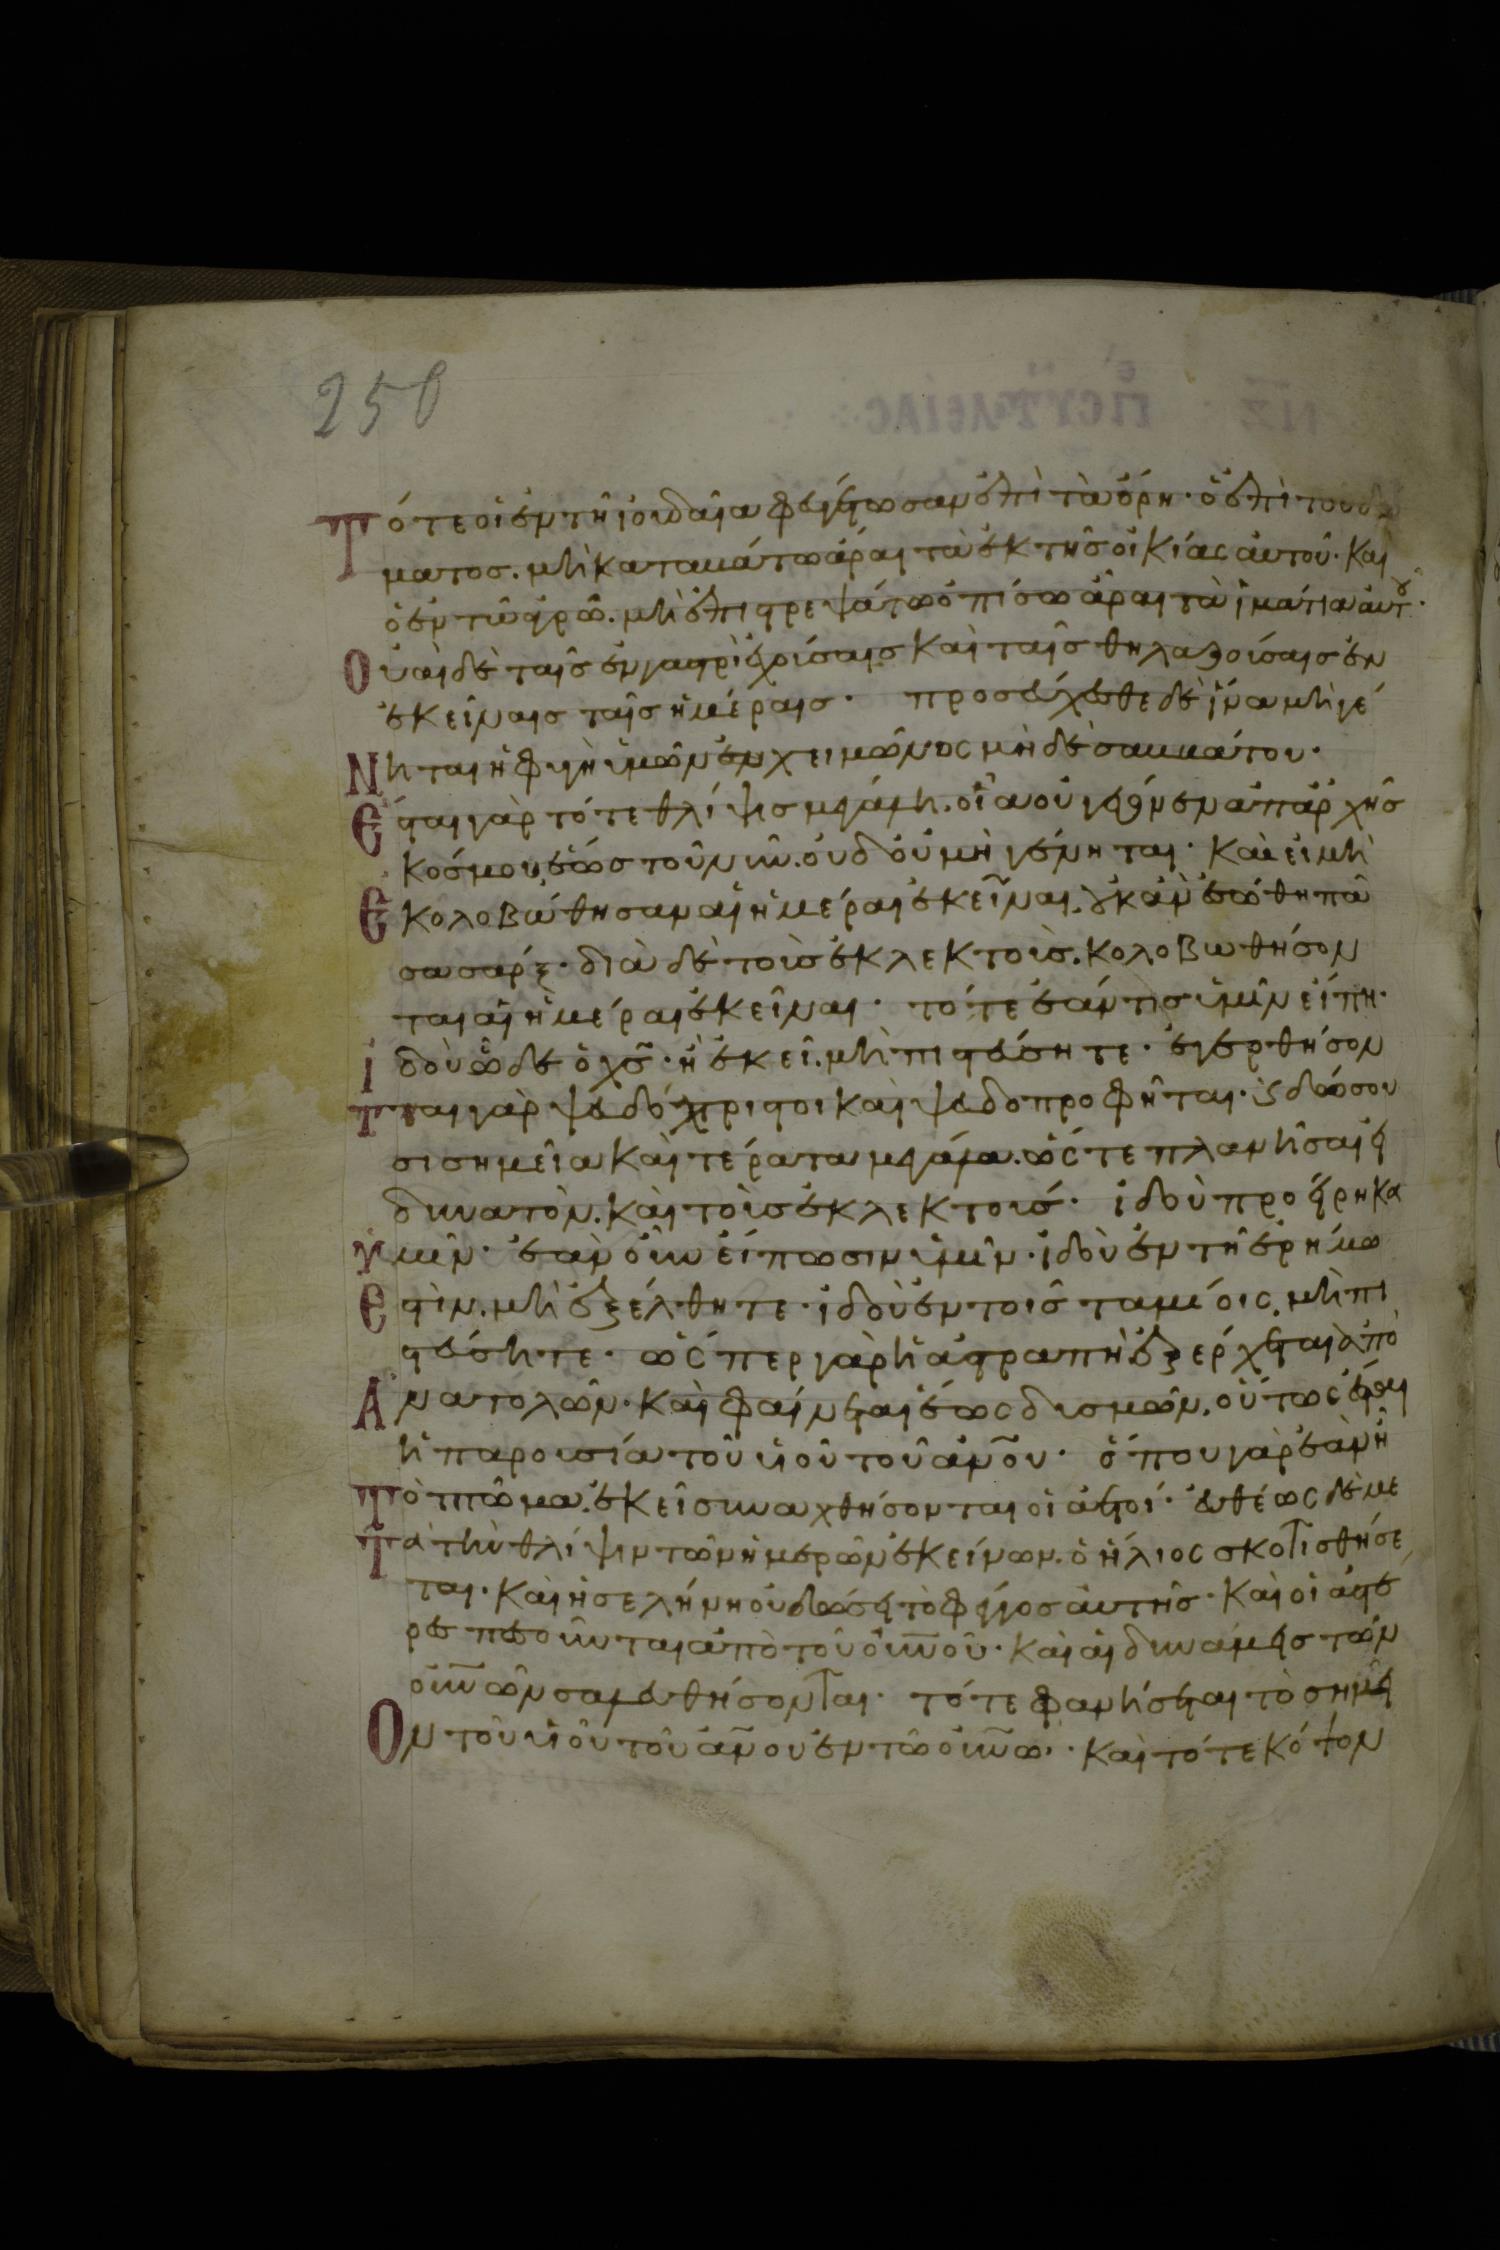 250
Τότε οἱ ἐν τῇ ἰουδαία φευγέτωσαν ἐπὶ τὰ ὄρη· ὁ ἐπὶ τοῦ δώ
ματοσ. μὴ καταβάτω ἄραι τὰ ἐκ τῆσ οἰκίας αὐτοῦ· καὶ
ὁ ἐν τῶ ἀγρῶ. μὴ ἐπιστρεψάτω ὀπίσω ἄραι τὰ ἱμάτια αὐτοῦ·
Οὐαὶ δὲ ταῖσ ἐν γαστρὶ ἐχούσαισ καὶ ταῖσ θηλαζούσαισ ἐν
ἐκείναισ ταῖσ ἡμέραισ· προσεύχεσθε δὲ ἵνα μὴ γέ
Νηται ἡ φυγὴ ὑμῶν ἐν χειμῶνος μὴ δὲ σαββάτου·
Ἔσται γὰρ τότε θλίψισ μεγάλη. οἵα οὐ γέγονεν ἀπαρχῆσ
κόσμου, ἕωσ τοῦ νῦν. οὐδ οὐ μὴ γένηται· καὶ εἰ μὴ
Ἐκολοβώθησαν αἱ ἡμέραι ἐκεῖναι. οὐκ ἂν ἐσώθη πᾶ
σα σάρξ· διὰ δὲ τοὺσ ἐκλεκτοὺσ. κολοβωθήσον
ται αἱ ἡμέραι ἐκεῖναι· τότε ἐάν τισ ὑμῖν εἴπη·
Ἰδοὺ ὧδε ὁ χσ̅· ἢ ἐκεῖ. μὴ πιστεύσητε· ἐγερθήσον
Ται γὰρ ψευδόχριστοι καὶ ψευδοπροφῆται· ϗ δώσου
σι σημεῖα καὶ τέρατα μεγάλα. ὥστε πλανῆσαι εἰ
δυνατὸν. καὶ τοὺσ ἐκλεκτούσ· ἰδοὺ προείρηκα
Ὑμῖν· ἐὰν οὖν εἴπωσιν ὑμῖν· ἰδοὺ ἐν τῆ ἐρήμω
Ἐστὶν. μὴ ἐξέλθητε· ἰδοὺ ἐν τοῖσ ταμείοις. μὴ πι
στεύσητε· ὥσπερ γὰρ ἡ ἀστραπὴ ἐξέρχεται ἀπὸ
Ἀνατολῶν· καὶ φαίνεται ἕως δυσμῶν. οὕτως ἔσται
ἡ παρουσία τοῦ υἱοῦ τοῦ ἀν̅ου· ὅπου γὰρ ἐὰν ἦ
Τὸ πτῶμα. ἐκεῖ συναχθήσονται οἱ ἀετοί· εὐθέως δὲ με
Τὰ τὴν θλίψιν τῶν ἡμερῶν ἐκείνων. ὁ ἥλιος σκοτισθήσε
ται· καὶ ἡ σελήνη οὐ δώσει τὸ φέγγοσ αὐτῆσ· καὶ οἱ ἀστέ
ρεσ πεσοῦνται ἀπὸ τοῦ οὐν̅οῦ· καὶ αἱ δυνάμεισ τῶν
οὐν̅ῶν σαλευθήσονται· τότε φανήσεται τὸ σημεῖ
Ον τοῦ υἱοῦ τοῦ ἀν̅ου ἐν τῶ οὐν̅ῶ· καὶ τότε κόψον